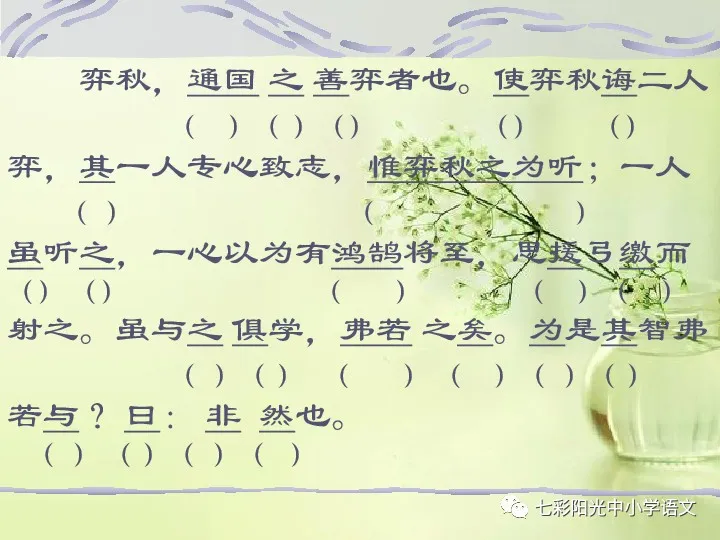 弈秋，通国 之 善弈者也。使弈秋诲二人
（ ）（ ）（ ） （ ） （ ）
弈，其一人专心致志，惟弈秋之为听；一人
（ ） （ ）
虽听之，一心以为有鸿鹄将至，思援弓缴而
（ ） （ ） （ ） （ ） （ ）
射之。虽与之 俱学，弗若 之矣。为是其智弗
（ ） （ ） （ ） （ ） （ ） （ ）
若与？ 曰： 非 然也。
（ ） （ ） （ ） （ ）
七彩阳光中小学语文